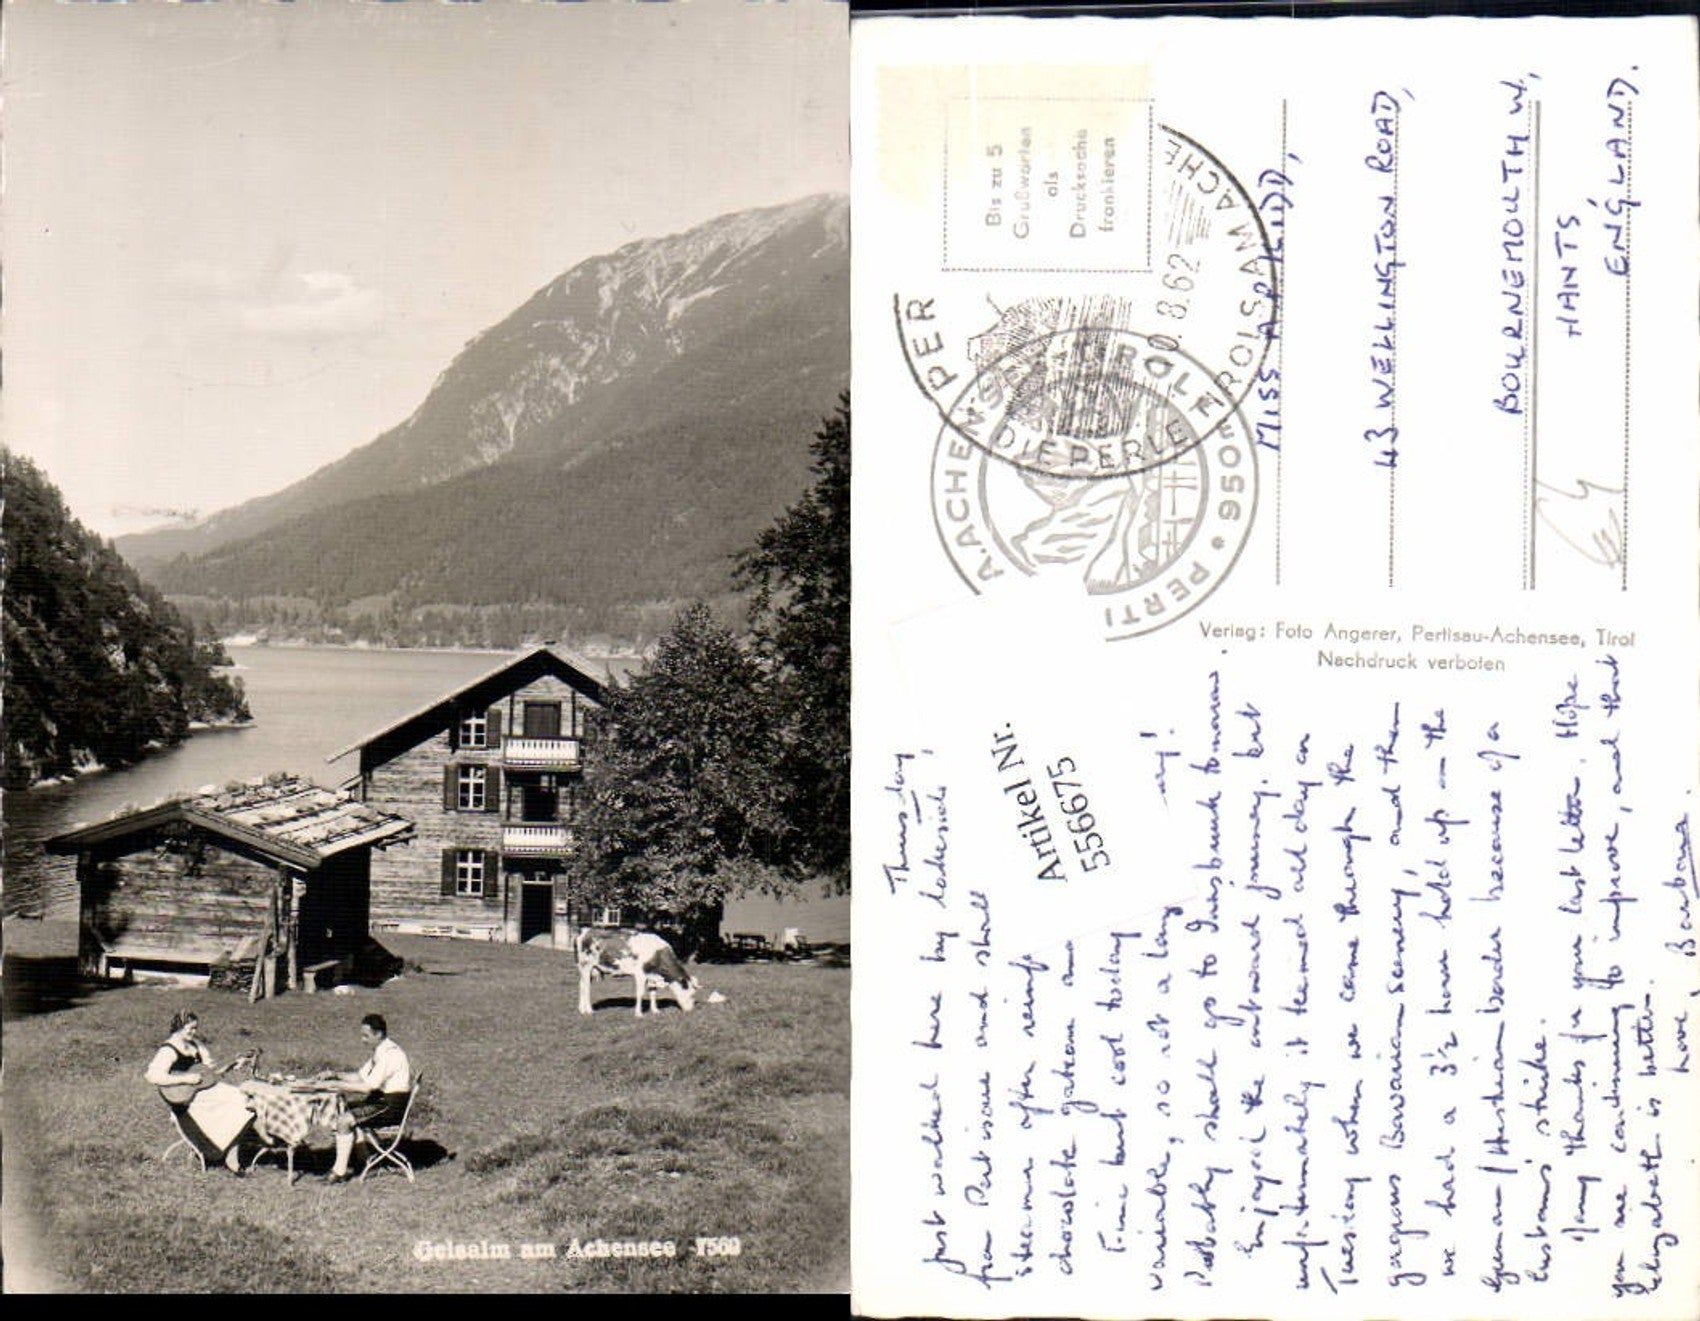 Geisalm am Achensee 7560
Bis zu 5
Grußworten
als
Drucksache
frankieren
PER
TIROLS AM ACHE
8.62
A.ACHENSEE TIROL
DIE PERLE
950m
PERTI
MISS A. P.
43 WELLINGTON ROAD,
BOURNEMOUTH W,
HANTS
ENGLAND.
Verlag: Foto Angerer, Pertisau-Achensee, Tirol
Nachdruck verboten
Artikel Nr.
556675
Thursday
Just walked here by lakeside,
from Pertisau and shall
steamer after
chocolate gateau
Fine but cool today
variable, so not a lazy
Probably shall go to Innsbruck tomorrow.
Enjoyed the outward journey, but
unfortunately it teemed all day on
Tuesday when we came through the
gorgeous Bavarian scenery, and then
we had a 3½ hour hold up — the
German/Austrian border because of a
customs' strike.
Many thanks for your last letter. Hope
you are continuing to improve, and that
Elizabeth is better.
Love, Barbara.